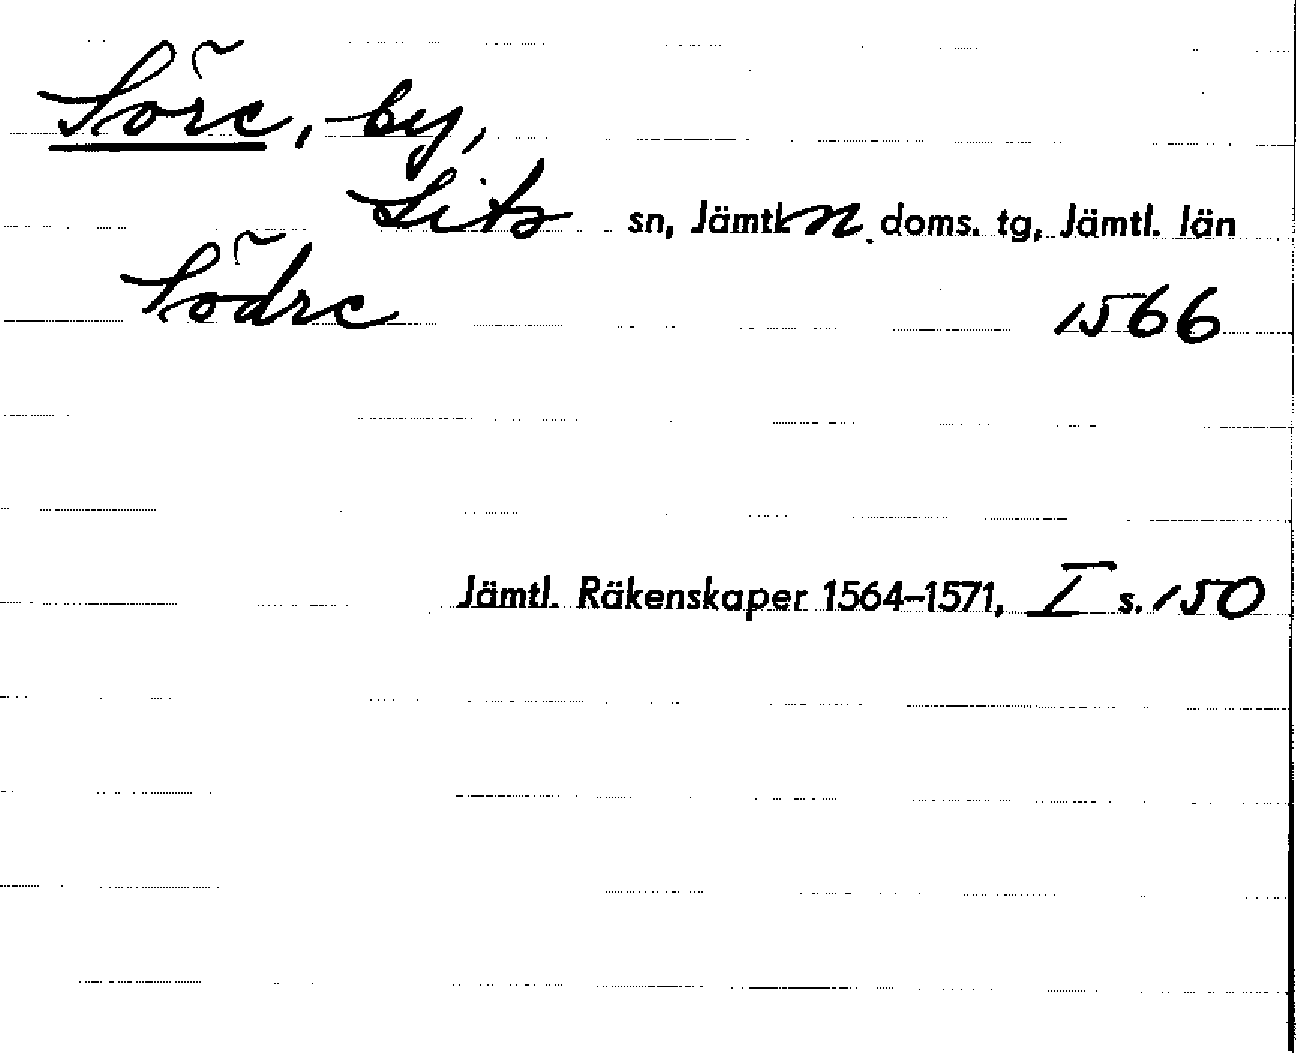 Söre, by,
Lits sn, Jämtl. n. doms. tg, Jämtl. län
Södre 1566
Jämtl. Räkenskaper 1564–1571, I s. 150